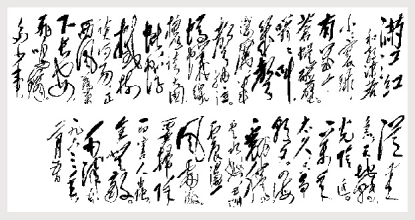 满江红
和郭沫若
小小寰球
有几个
苍蝇碰壁
嗡嗡叫
几声
凄厉
几声
抽泣
蚂蚁缘
槐夸大国
蚍蜉
撼树
谈何易正
西风落叶
下长安
飞鸣镝
多少事
从来
急天地转
光阴迫
一万年
太久只争
朝夕四海
翻腾
云水怒五洲
震荡
风雷激
要扫除
一切害人虫
全无敌
毛泽东
一九六三年
二月五日